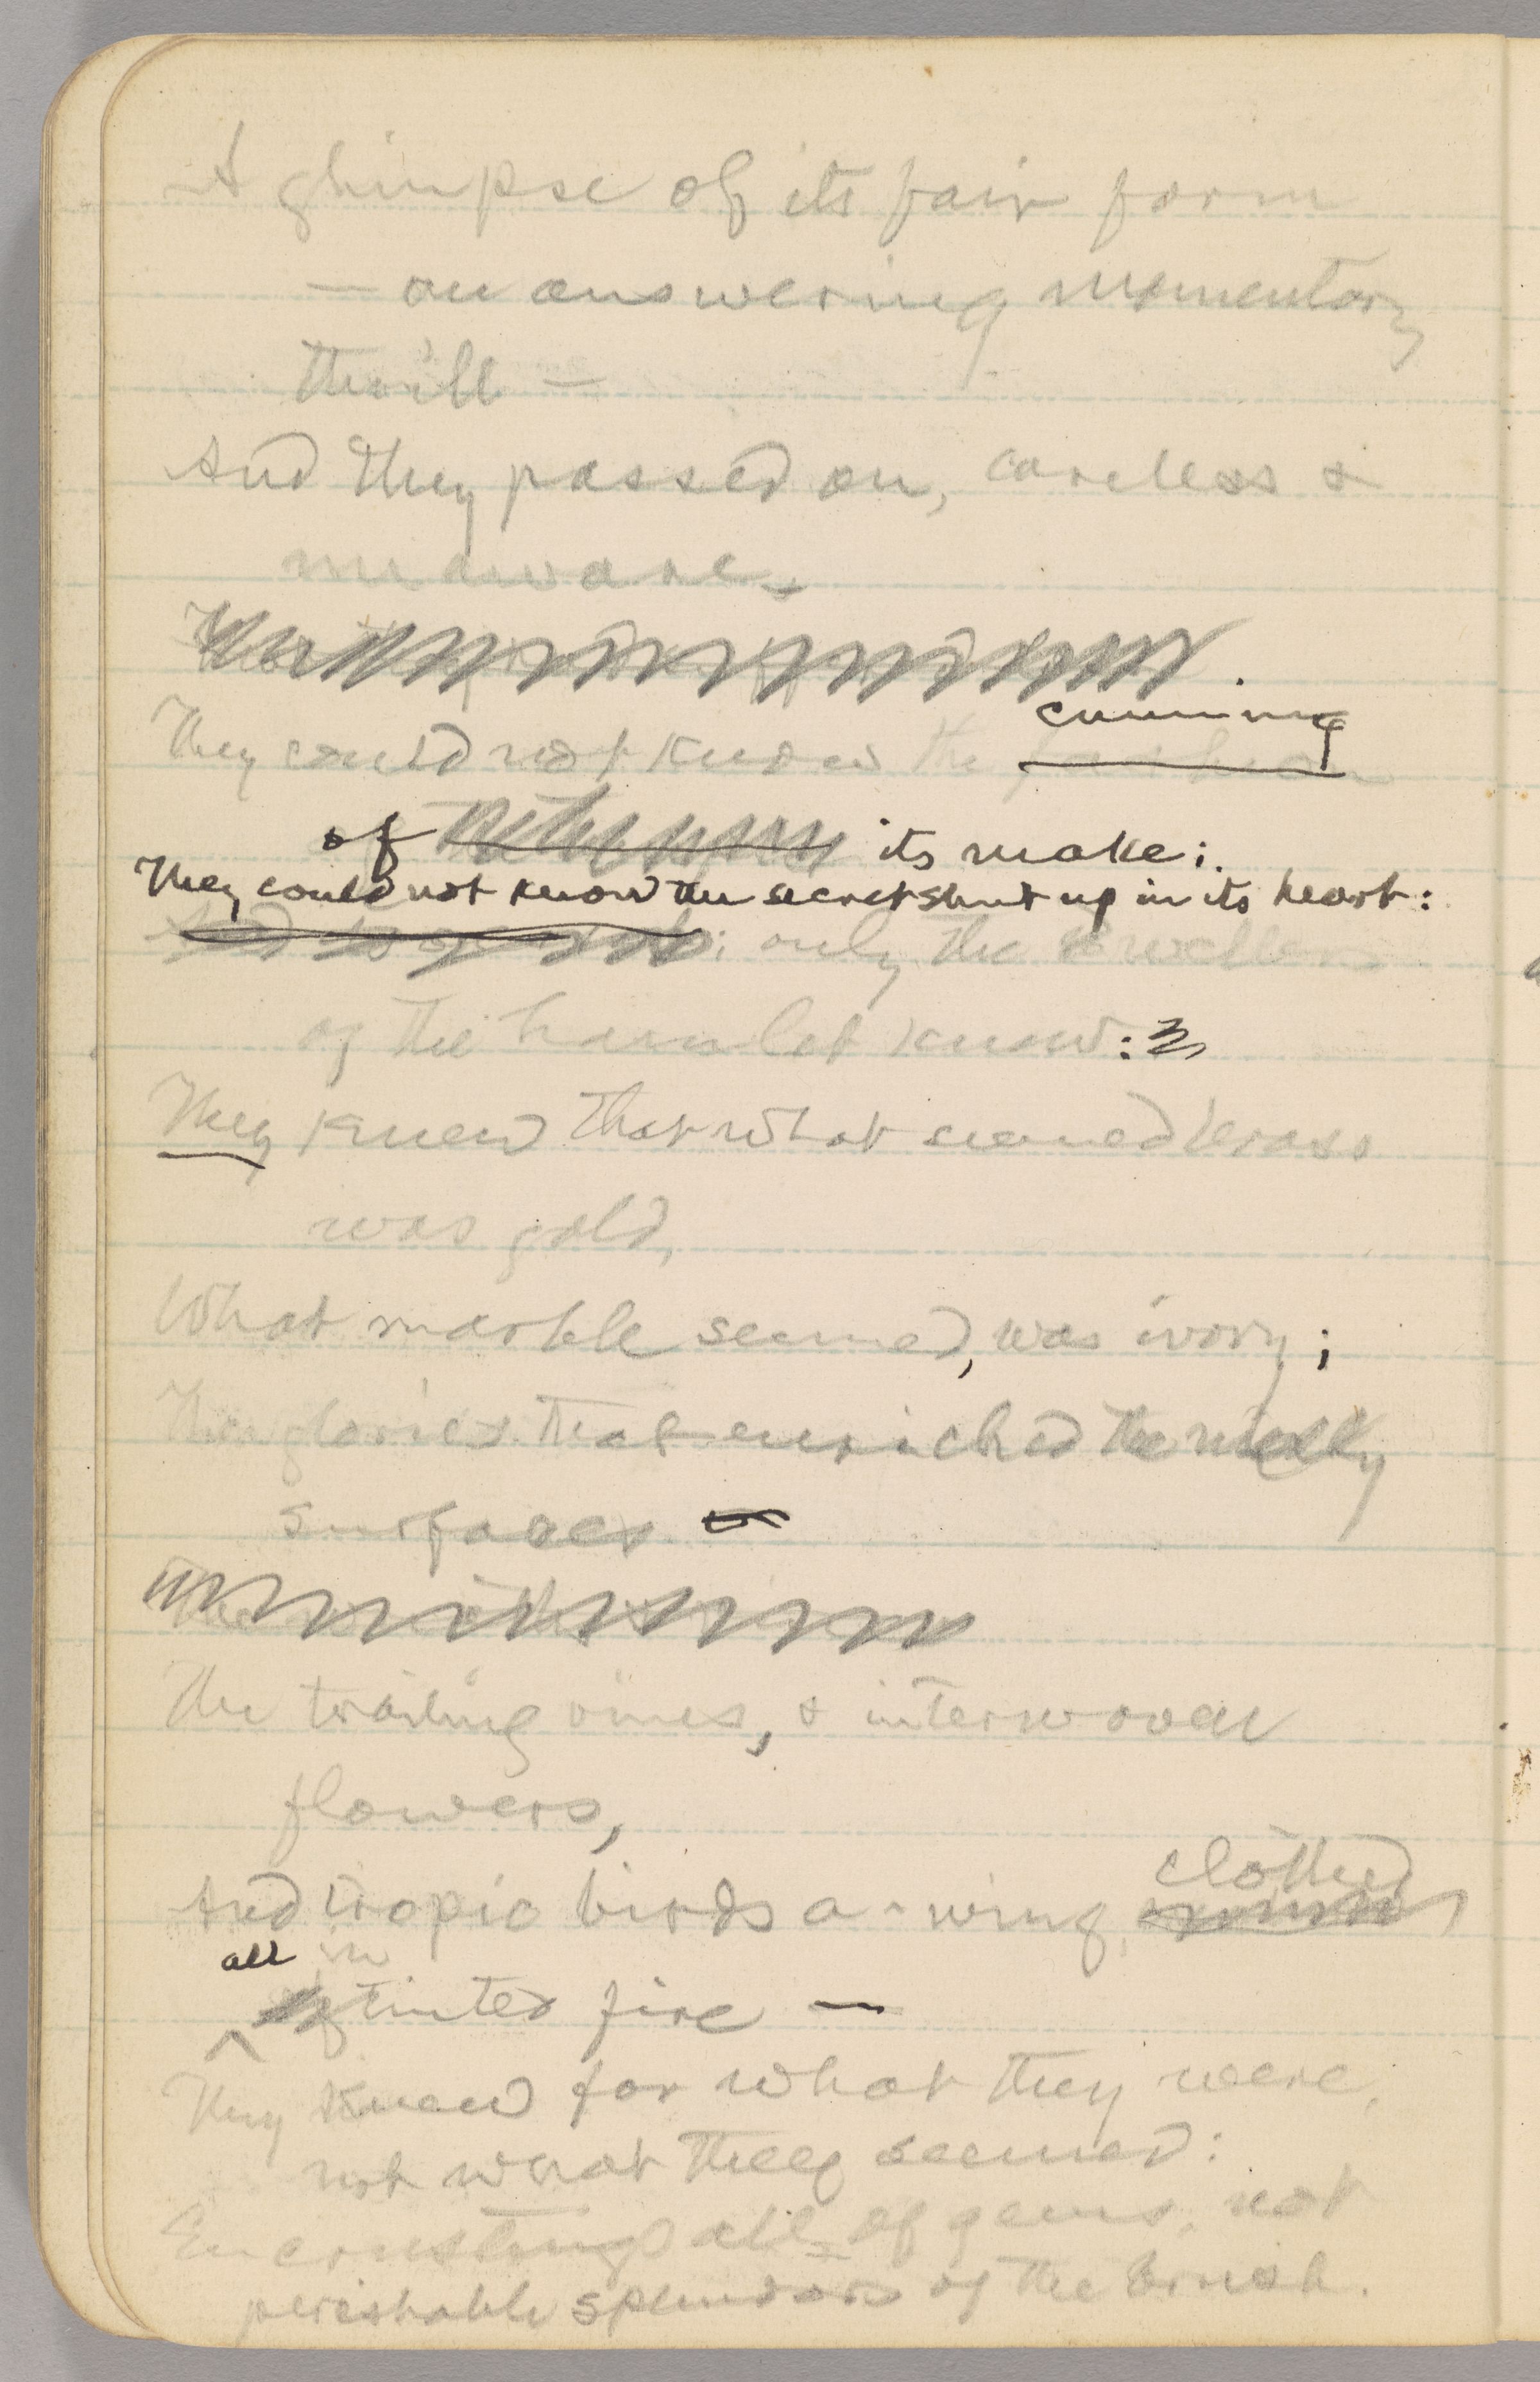 A glimpse of its fair form
— an answering momentary
thrill —
And they passed on, careless &
unaware.
cunning
They could not know the fashion
of its make;
They could not know the secret shut up in its heart:
only the dwellers
of the hamlet knew:
They knew that what seemed brass
was gold,
What marble seemed, was ivory;
The glories that enriched the milky
surfaces —
The trailing vines, & interwoven
flowers,
clothed
And tropic birds a-wing,
all in
tinted fire —
They knew for what they were,
not what they seemed:
Encrustings all of gems, not
perishable splendors of the brush.